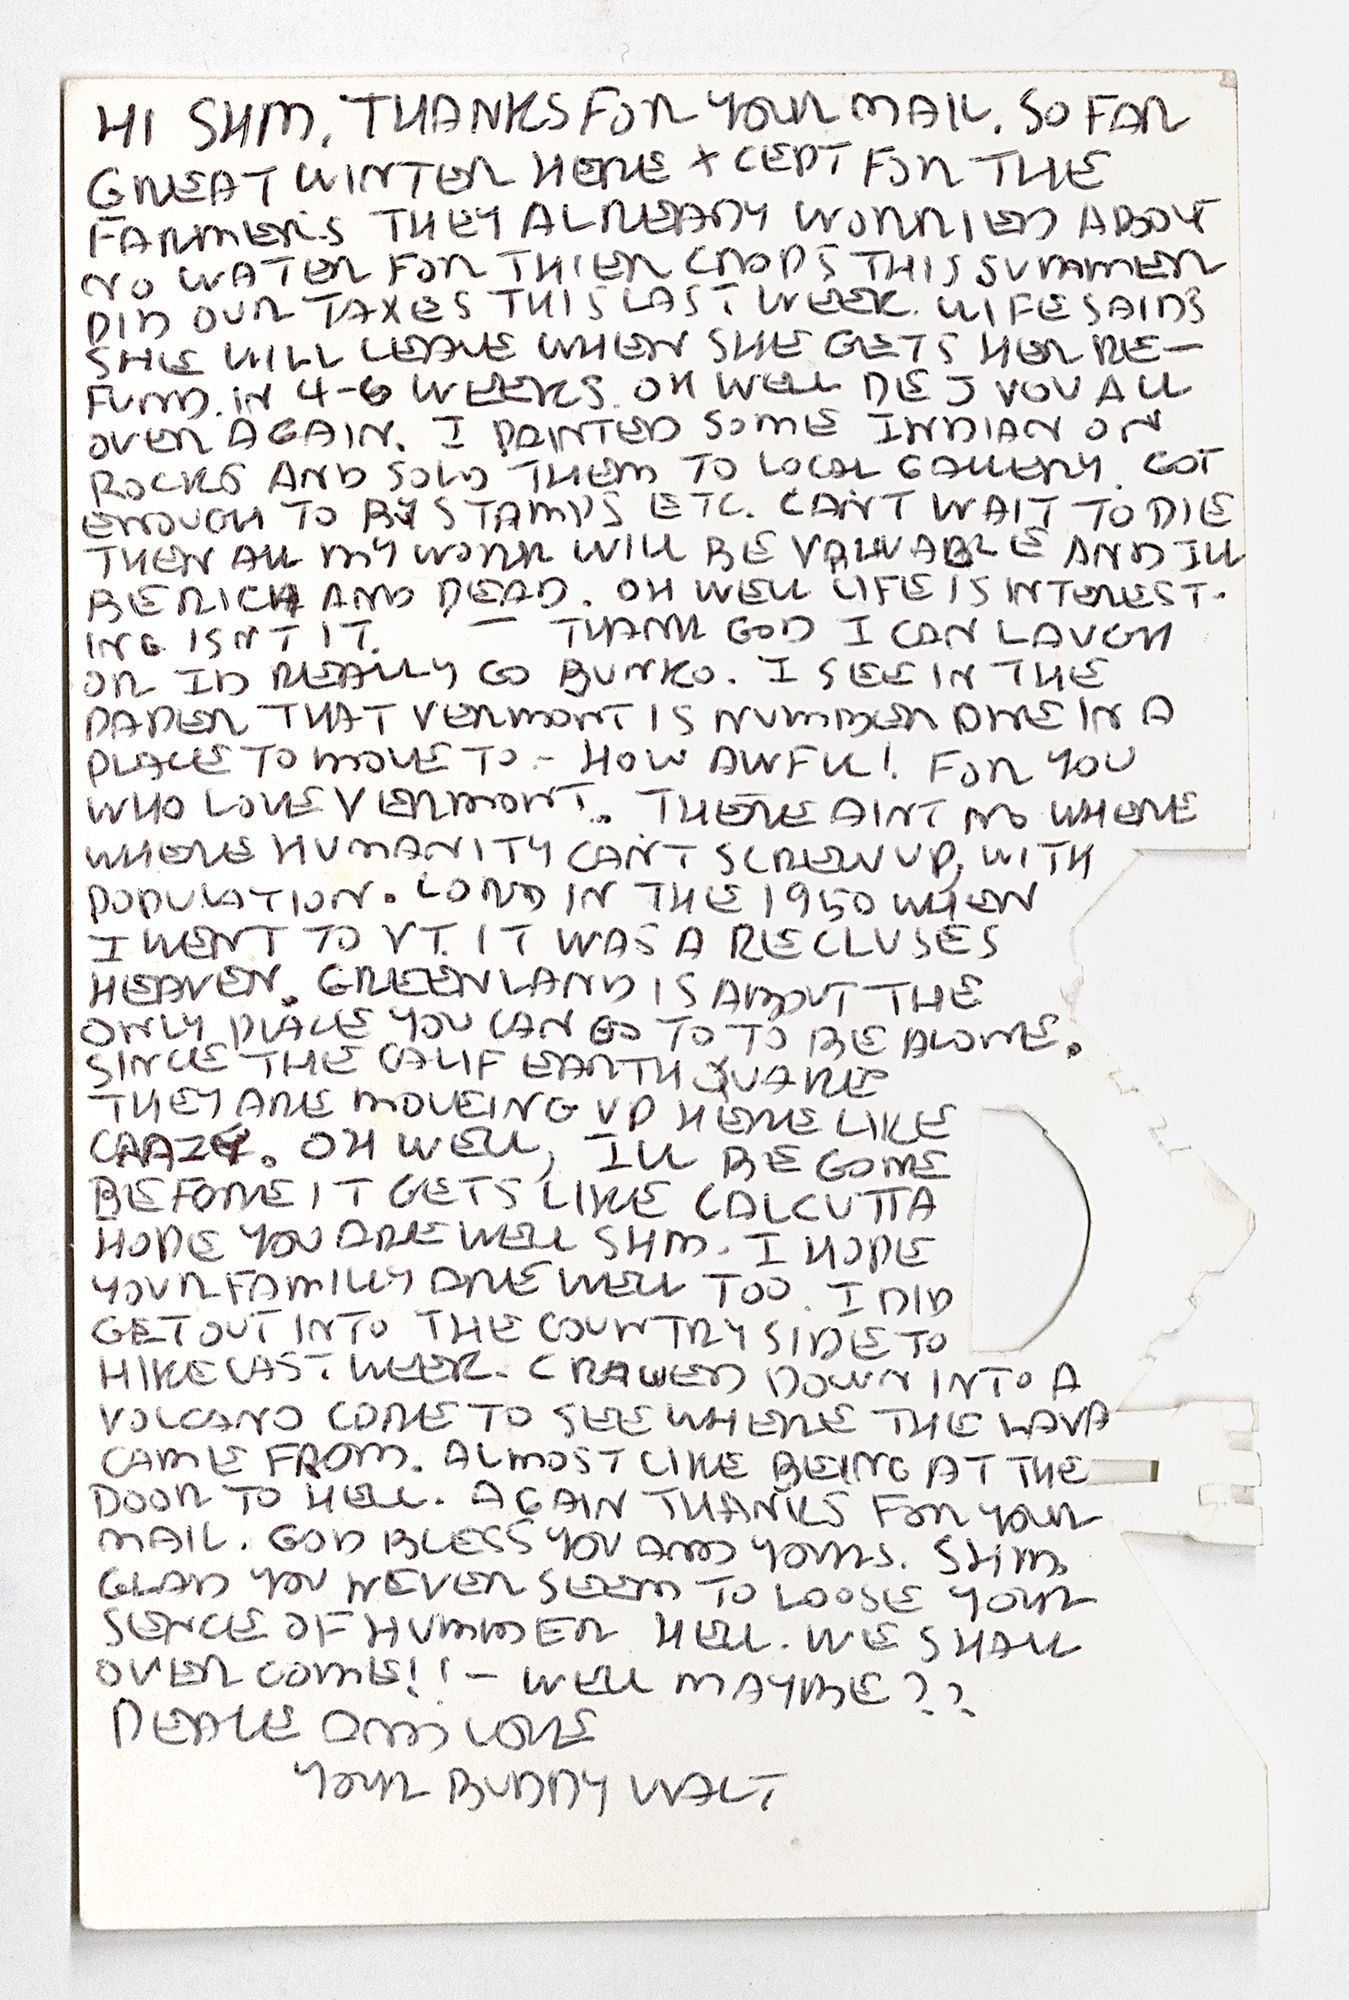 HI SHM, THANKS FOR YOUR MAIL. SO FAR
GREAT WINTER HERE XCEPT FOR THE
FARMERS THEY ALREADY WORRIED ABOUT
NO WATER FOR THIER CROPS THIS SUMMER
DID OUR TAXES THIS LAST WEEK. WIFE SAIDS
SHE WILL LEAVE WHEN SHE GETS HER RE-
FUND. IN 4-6 WEEKS. OH WELL DEJ VOU ALL
OVER AGAIN. I PAINTED SOME INDIAN ON
ROCKS AND SOLD THEM TO LOCAL GALLERY. GOT
ENOUGH TO BY STAMPS ETC. CAN'T WAIT TO DIE
THEN ALL MY WORK WILL BE VALUABLE AND ILL
BE RICH AND DEAD. OH WELL LIFE IS INTEREST-
ING ISNT IT. — THANK GOD I CAN LAUGH
OR ID REALLY GO BUNKO. I SEE IN THE
PAPER THAT VERMONT IS NUMBER ONE IN A
PLACE TO MOVE TO - HOW AWFUL! FOR YOU
WHO LOVE VERMONT. THERE AINT NO WHERE
WHERE HUMANITY CAN'T SCREW UP, WITH
POPULATION. LORD IN THE 1950 WHEN
I WENT TO VT. IT WAS A RECLUSES
HEAVEN. GREENLAND IS ABOUT THE
ONLY PLACE YOU CAN GO TO TO BE ALONE.
SINCE THE CALIF EARTH QUAKE
THEY ARE MOVEING UP HERE LIKE
CRAZY. OH WELL, ILL BE GONE
BEFORE IT GETS LIKE CALCUTTA
HOPE YOU ARE WELL SHM. I HOPE
YOUR FAMILY ARE WELL TOO. I DID
GET OUT INTO THE COUNTRY SIDE TO
HIKE LAST WEEK. CRAWED DOWN INTO A
VOLCANO CORE TO SEE WHERE THE LAVA
CAME FROM. ALMOST LIKE BEING AT THE
DOOR TO HELL. AGAIN THANKS FOR YOUR
MAIL. GOD BLESS YOU AND YOURS. SHM
GLAD YOU NEVER SEEM TO LOOSE YOUR
SENCE OF HUMMER HELL. WE SHALL
OVER COME!! - WELL MAYBE??
PEACE AND LOVE
YOUR BUDDY WALT